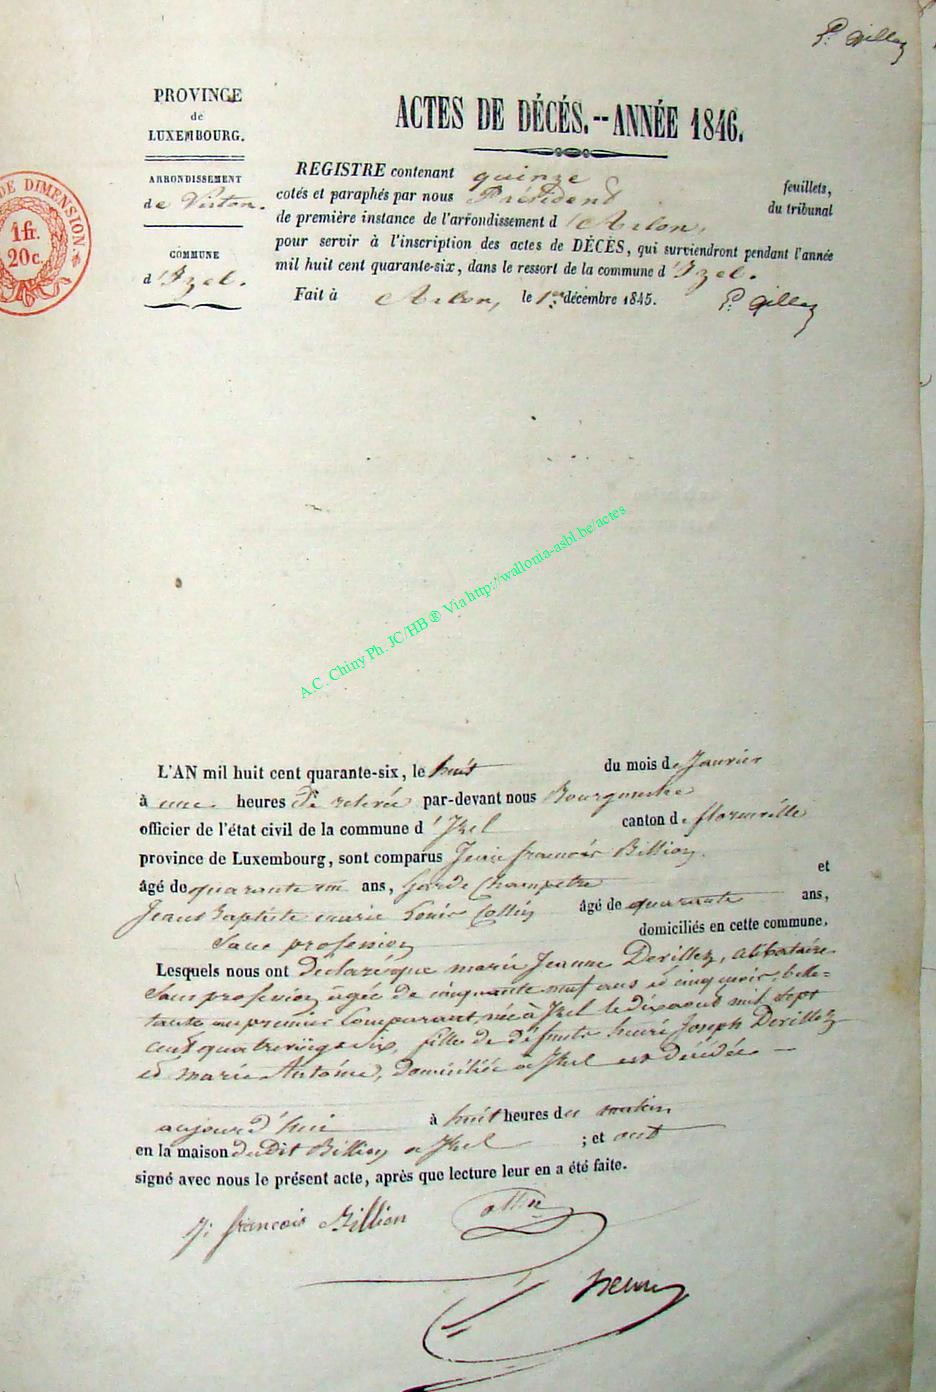 P. Gillez
PROVINCE
de
LUXEMBOURG.
ARRONDISSEMENT
de Virton.
COMMUNE
d'Izel.
DE DIMENSION
1 fr.
20 c.
ACTES DE DÉCÉS.--ANNÉE 1846.
REGISTRE contenant quinze feuillets,
cotés et paraphés par nous Président du tribunal
de première instance de l'arrondissement d'Arlon,
pour servir à l'inscription des actes de DÉCÈS, qui surviendront pendant l'année
mil huit cent quarante-six, dans le ressort de la commune d'Izel.
Fait à Arlon, le 1er décembre 1845. P. Gillez
A.C. Chiny Ph. JC/HB ® Via http://wallonia-asbl.be/actes
L'AN mil huit cent quarante-six, le huit du mois de Janvier
à une heures de relevée par-devant nous Bourgmestre
officier de l'état civil de la commune d'Izel canton de florenville
province de Luxembourg, sont comparus Jean françois Billion
âgé de quarante un ans, Garde Champetre et
Jean Baptiste marie Louis Collin âgé de quarante ans,
Sans profession domiciliés en cette commune.
Lesquels nous ont déclaré que marie Jeanne Devillez, celibataire
Sans profession, agée de cinquante neuf ans et cinq mois, belle-
tante au premier Comparant, née à Izel le dix aout mil sept
cent quatrevingt six, fille de défunts henri Joseph Devillez
et marie Antoine, domiciliée a Izel est décédée
aujourd'hui à huit heures du matin
en la maison dudit Billion a Izel ; et ont
signé avec nous le présent acte, après que lecture leur en a été faite.
J: françois Billion Collin
henri